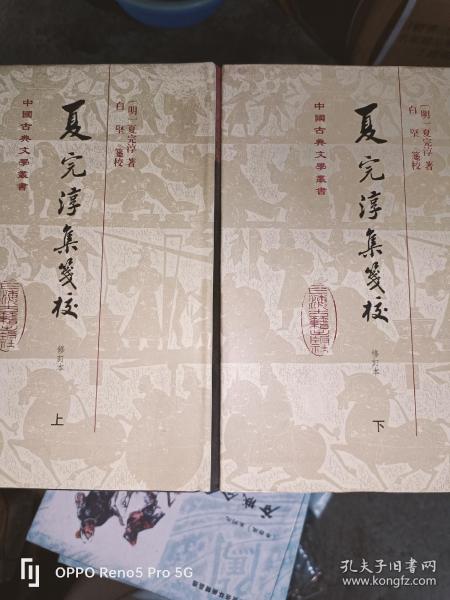 中國古典文學叢書
夏完淳集箋校
〔明〕夏完淳 著
白堅 箋校
修訂本
上
中國古典文學叢書
夏完淳集箋校
〔明〕夏完淳 著
白堅 箋校
修訂本
下
OPPO Reno5 Pro 5G
孔夫子旧书网
www.kongfz.com